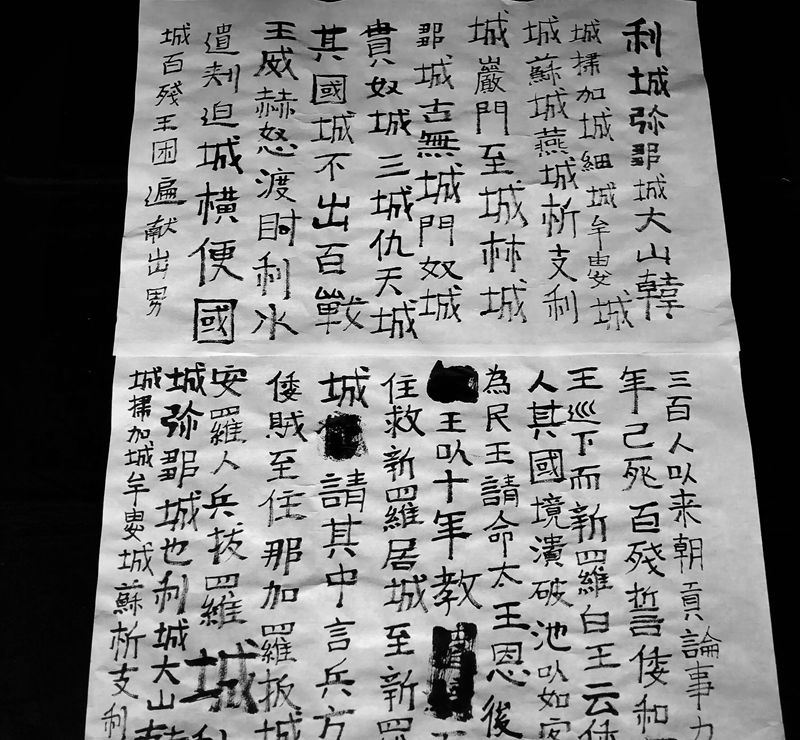 利城弥鄒城大山韓
城掃加城細城牟婁城
城蘇城燕城析支利
城巖門至城林城
鄒城古無城門奴城
貴奴城三城仇天城
其國城不出百戰
王威赫怒渡利水
遣刾迫城橫便國
城百殘王困遍献出男
三百人以来朝貢論事
年己死百殘誓倭和
王巡下而新羅白王云
人其國境潰破池以如客
為民王請命太王恩後
王以十年教
住救新羅居城至新羅
城請其中言兵方
倭賊至住那加羅扳城
安羅人兵拔羅城利
城弥鄒城也利城大山
城掃加城牟婁城蘇析支利